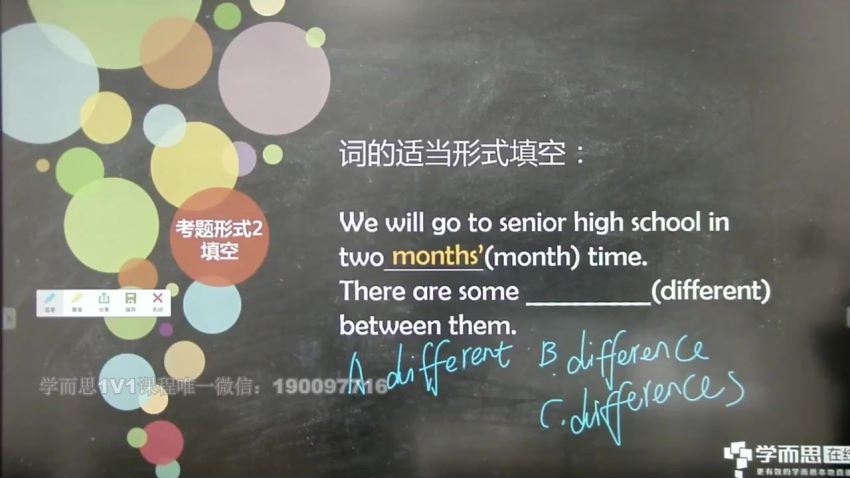 词的适当形式填空：
考题形式2
填空
We will go to senior high school in
two months’(month) time.
There are some __________(different)
between them.
A. different B. difference
C. differences
学而思1V1课程唯一微信：190097716
学而思在线